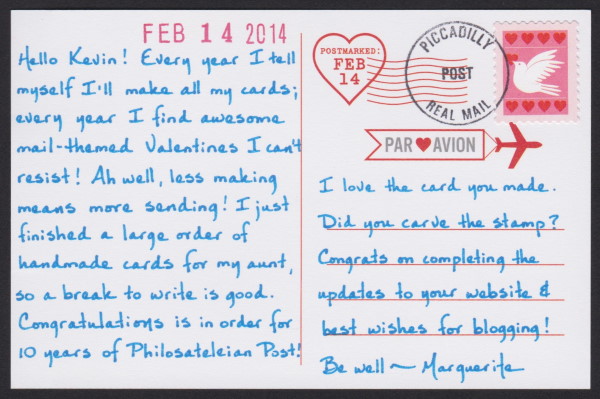 FEB 14 2014
Hello Kevin! Every year I tell
myself I'll make all my cards;
every year I find awesome
mail-themed Valentines I can't
resist! Ah well, less making
means more sending! I just
finished a large order of
handmade cards for my aunt,
so a break to write is good.
Congratulations is in order for
10 years of Philosateleian Post!
POSTMARKED:
FEB
14
PICCADILLY
POST
REAL MAIL
PAR AVION
I love the card you made.
Did you carve the stamp?
Congrats on completing the
updates to your website &
best wishes for blogging!
Be well ~ Marguerite